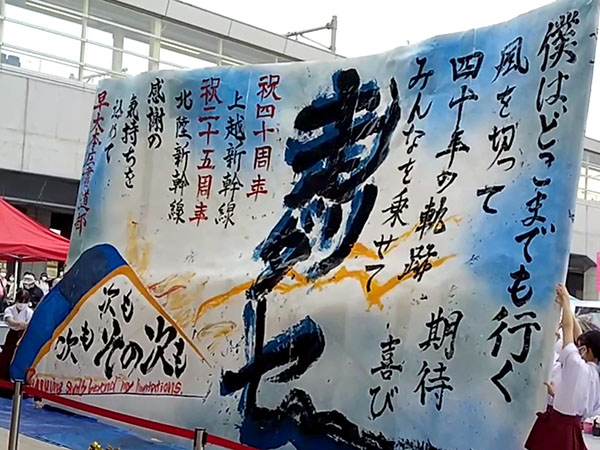 僕はどこまでも行く
風を切って
四十年の軌跡
期待
みんなを乗せて
喜び
祝四十周年
上越新幹線
祝二十五周年
北陸新幹線
感謝の
気持ちを
込めて
早大本庄書道部
次も
次も その次も
beyond my limitations.